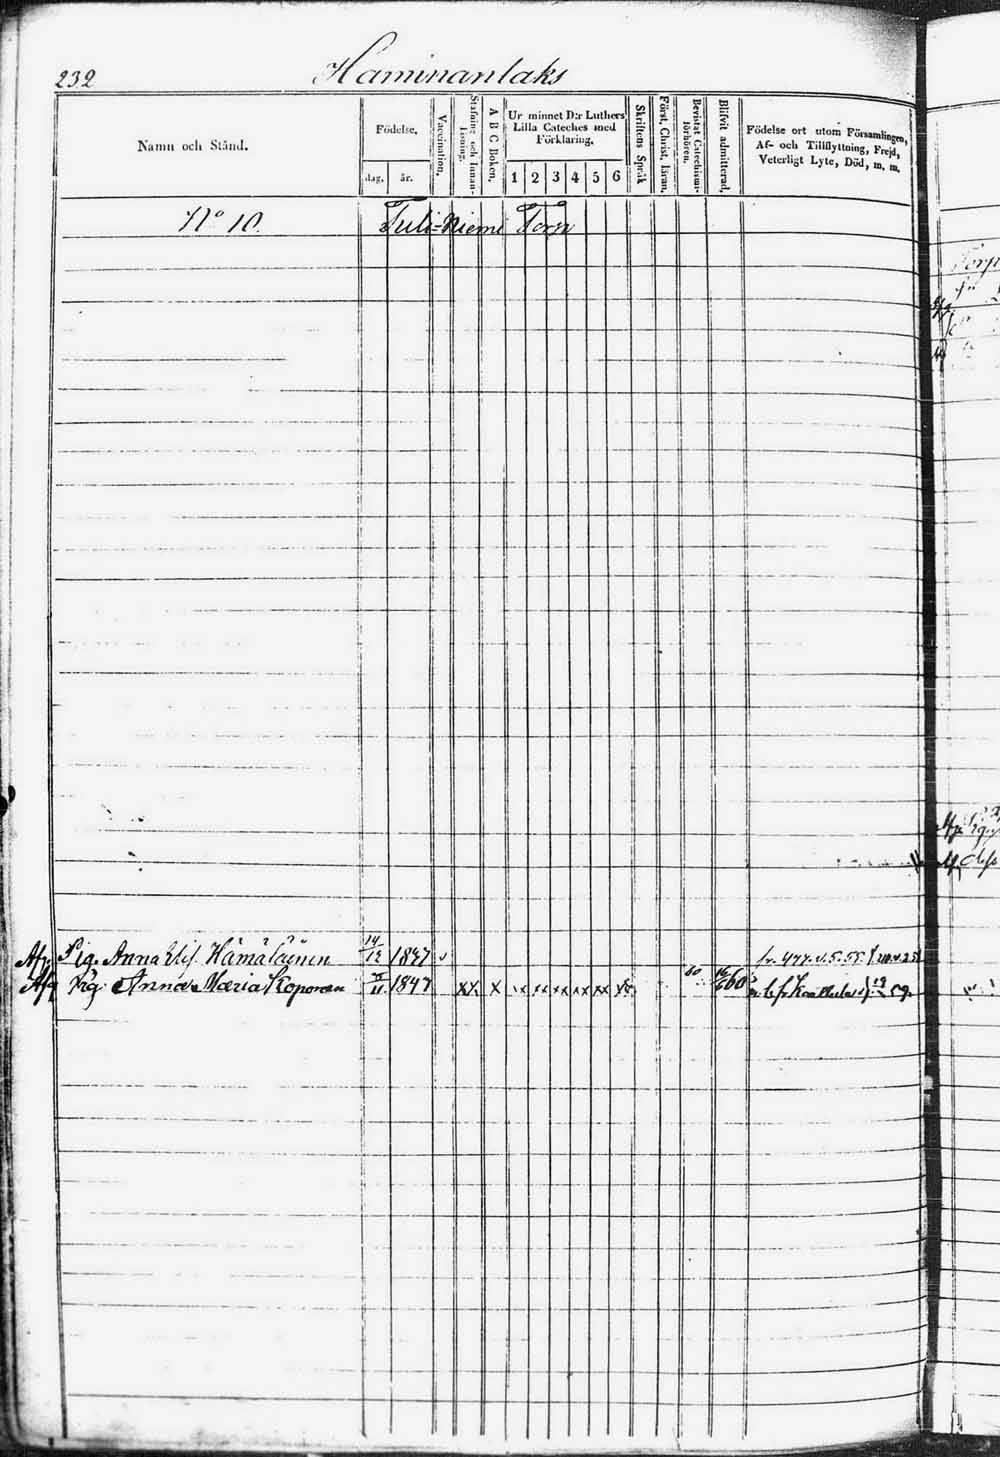 232 Haminanlaks
Namn och Stånd.
Födelse,
dag. år.
Vaccination.
Stafning och Innan-
läsning.
A B C Boken.
Ur minnet D:r Luthers
Lilla Cateches med
Förklaring.
1 2 3 4 5 6
Skriftens Språk
Först. Christ. läran.
Bevistat Catechismi-
förhören.
Blifvit admitterad.
Födelse ort utom Församlingen,
Af- och Tillflyttning, Frejd,
Veterligt Lyte, Död, m. m.
No 10. Tuli=Niemi Torp
Pig. Anna Elis. Hämäläinen 14/12 1847 fr. 477.
Pig. Anna Maria Koponen 1847 xx x xx xx xx xx xx 60 60